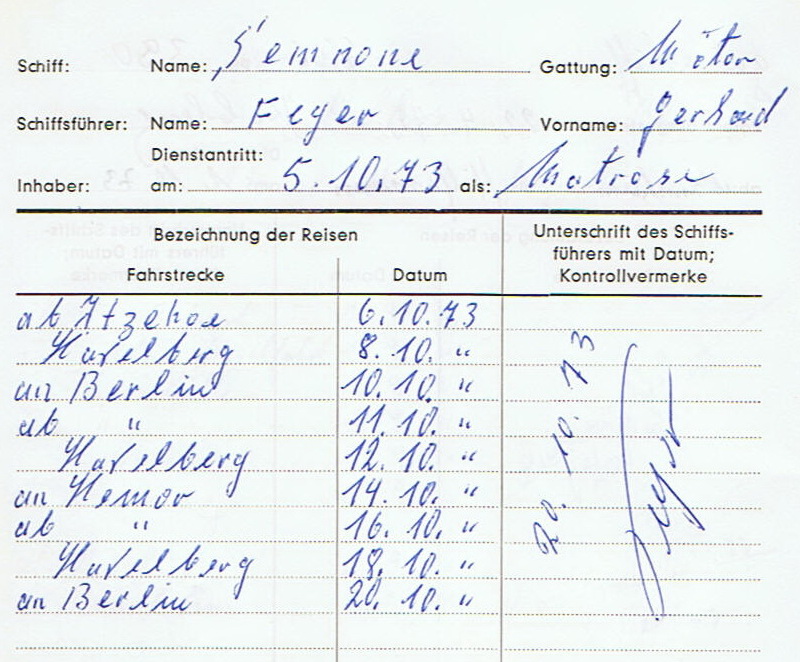 Schiff: Name: Semnone Gattung: Motor
Schiffsführer: Name: Feyer Vorname: Gerhard
Dienstantritt:
Inhaber: am: 5.10.73 als: Matrose
Bezeichnung der Reisen
Unterschrift des Schiffs-
führers mit Datum;
Kontrollvermerke
Fahrstrecke Datum
ab Itzehoe 6.10.73
Havelberg 8.10. "
an Berlin 10.10. "
ab " 11.10. "
Havelberg 12.10. "
an Hemor 14.10. "
ab " 16.10. "
Havelberg 18.10. "
an Berlin 20.10. "
20.10.73
Feyer